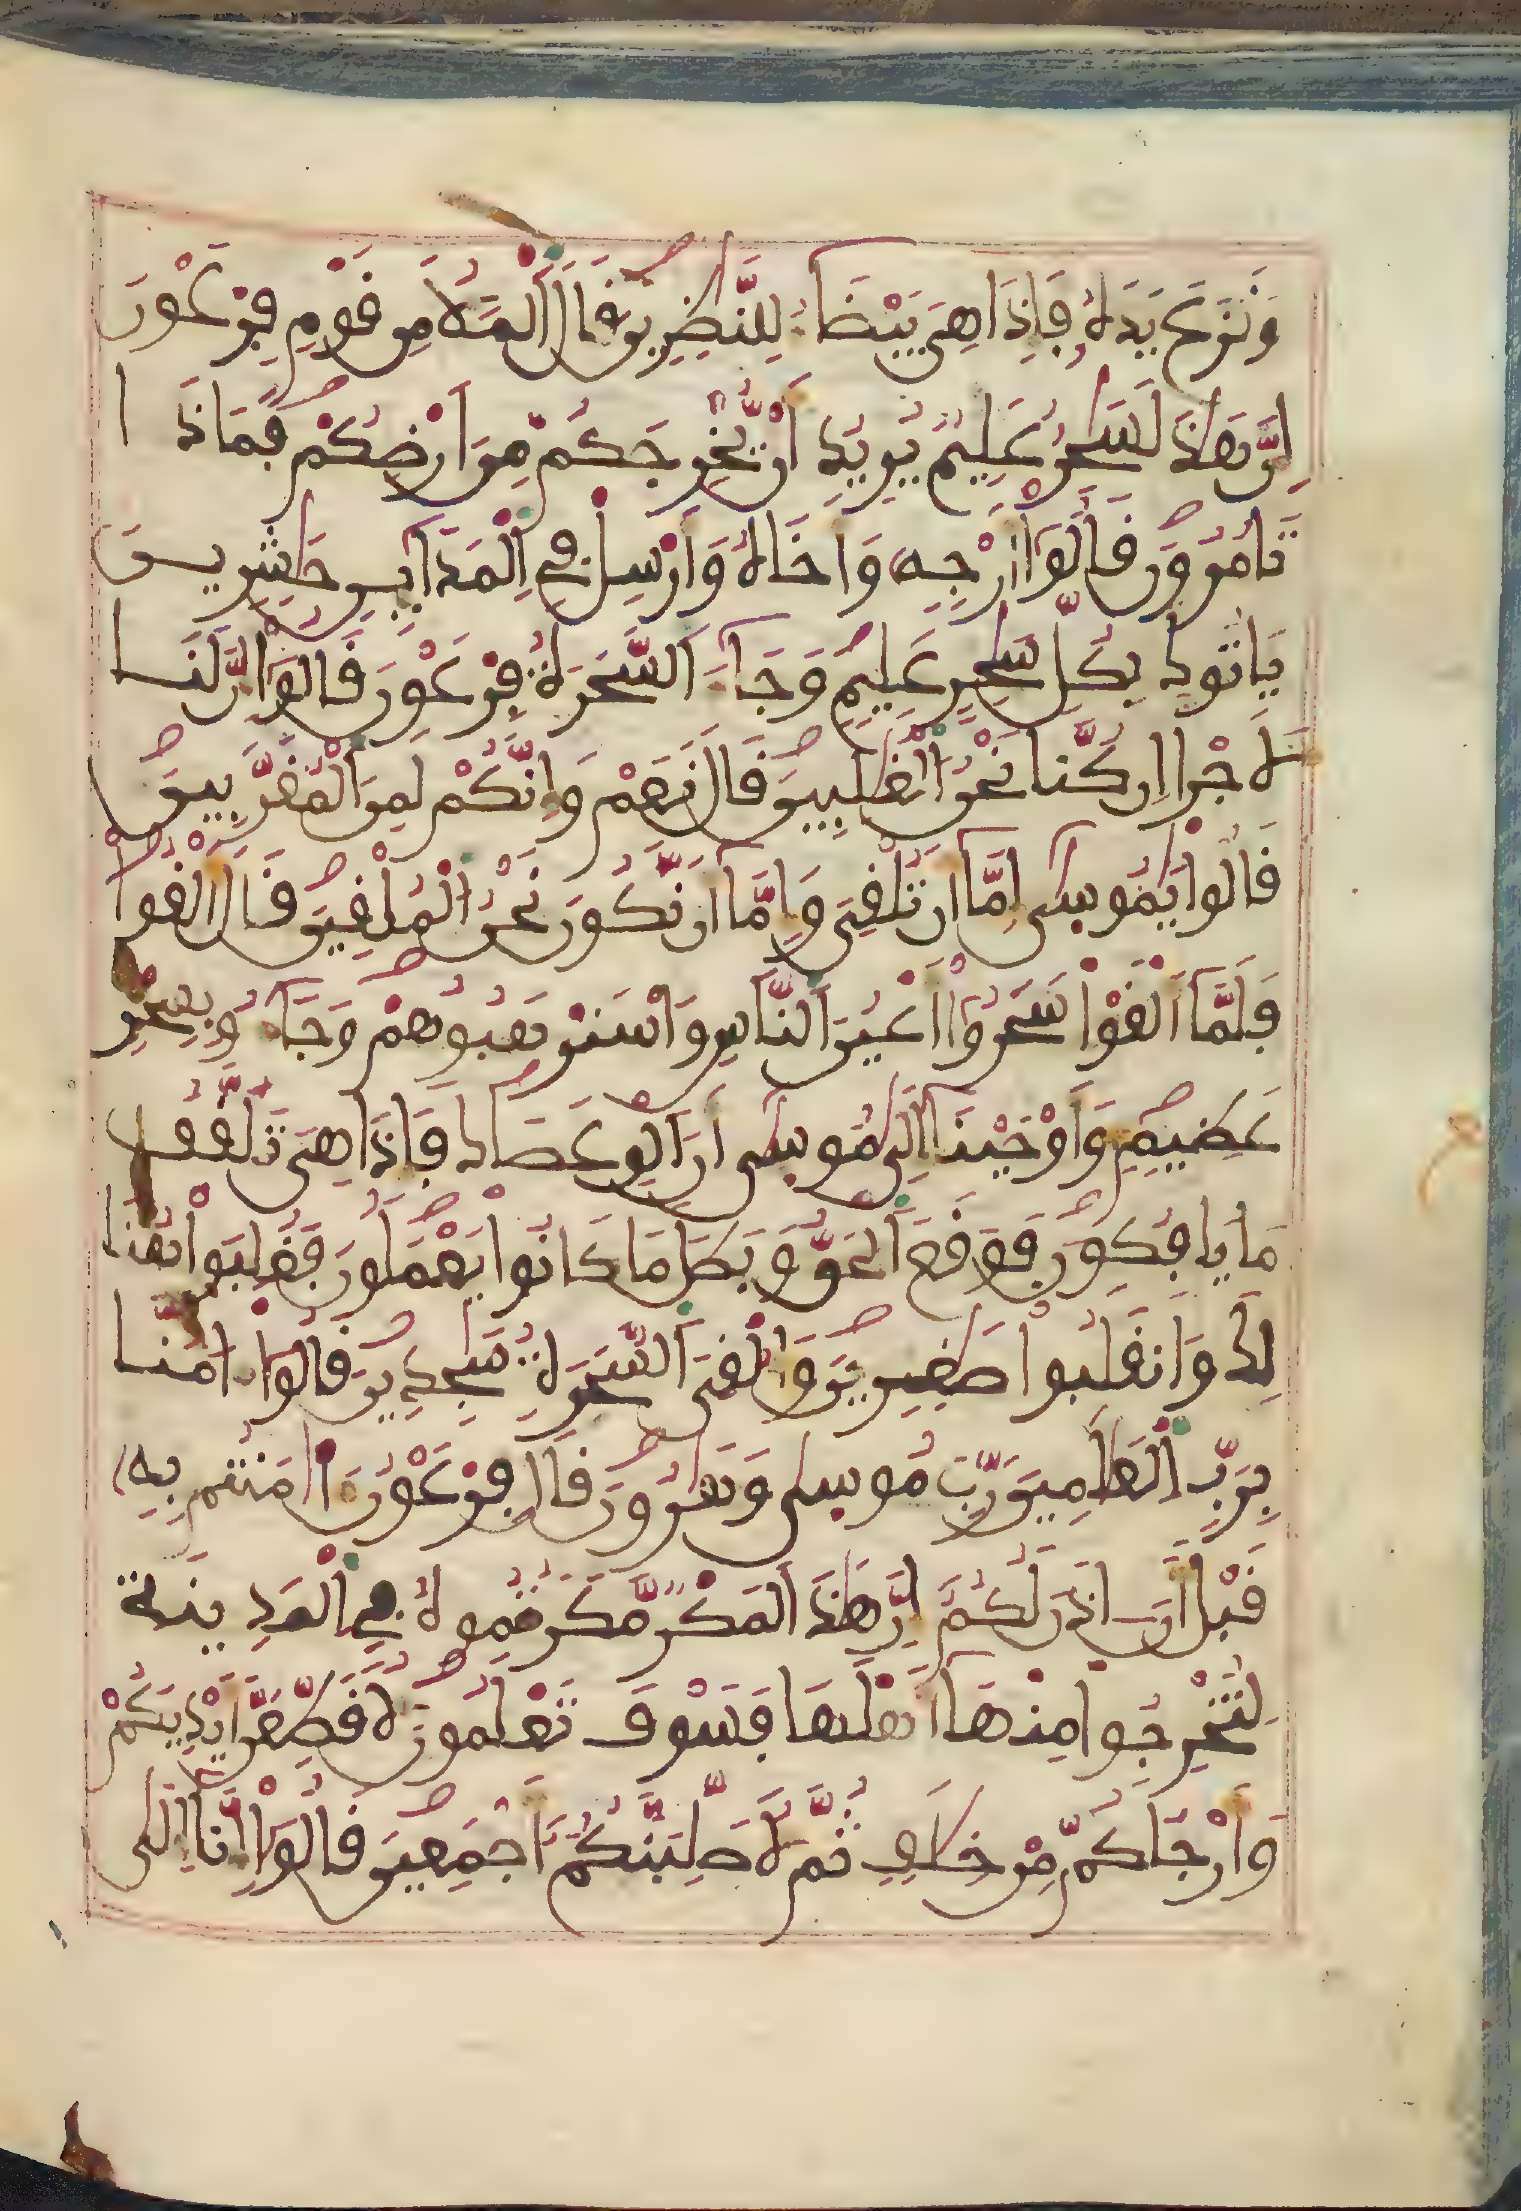 وَنَزَعَ يَدَهُۥ فَإِذَا هِىَ بَيْضَآءُ لِلنَّٰظِرِينَ قَالَ ٱلْمَلَأُ مِن قَوْمِ فِرْعَوْنَ
إِنَّ هَٰذَا لَسَٰحِرٌ عَلِيمٌ يُرِيدُ أَنْ يُّخْرِجَكُم مِّنَ ٱرْضِكُمْ فَمَاذَا
تَامُرُونَ قَالُوٓا۟ أَرْجِهِ وَأَخَاهُ وَأَرْسِلْ فِى ٱلْمَدَآئِنِ حَٰشِرِينَ
يَاتُوكَ بِكُلِّ سَٰحِرٍ عَلِيمٍ وَجَآءَ ٱلسَّحَرَةُ فِرْعَوْنَ قَالُوٓا۟ إِنَّ لَنَا
لَأَجْرًا إِن كُنَّا نَحْنُ ٱلْغَٰلِبِينَ قَالَ نَعَمْ وَإِنَّكُمْ لَمِنَ ٱلْمُقَرَّبِينَ
قَالُوا۟ يَٰمُوسَىٰٓ إِمَّآ أَن تُلْقِىَ وَإِمَّآ أَن نَّكُونَ نَحْنُ ٱلْمُلْقِينَ قَالَ أَلْقُوا۟
فَلَمَّآ أَلْقَوْا۟ سَحَرُوٓا۟ أَعْيُنَ ٱلنَّاسِ وَٱسْتَرْهَبُوهُمْ وَجَآءُو بِسِحْرٍ
عَظِيمٍ وَأَوْحَيْنَآ إِلَىٰ مُوسَىٰٓ أَنَ ٱلْقِ عَصَاكَ فَإِذَا هِىَ تَلَقَّفُ
مَا يَافِكُونَ فَوَقَعَ ٱلْحَقُّ وَبَطَلَ مَا كَانُوا۟ يَعْمَلُونَ فَغُلِبُوا۟ هُنَا
لِكَ وَٱنقَلَبُوا۟ صَٰغِرِينَ وَأُلْقِىَ ٱلسَّحَرَةُ سَٰجِدِينَ قَالُوٓا۟ ءَامَنَّا
بِرَبِّ ٱلْعَٰلَمِينَ رَبِّ مُوسَىٰ وَهَٰرُونَ قَالَ فِرْعَوْنُ ءَا۬مَنتُم بِهِۦ
قَبْلَ أَنَ اٰذَنَ لَكُمُۥٓ إِنَّ هَٰذَا لَمَكْرٌ مَّكَرْتُمُوهُ فِى ٱلْمَدِينَةِ
لِتُخْرِجُوا۟ مِنْهَآ أَهْلَهَا فَسَوْفَ تَعْلَمُونَ لَأُقَطِّعَنَّ أَيْدِيَكُمْ
وَأَرْجُلَكُم مِّنْ خِلَٰفٍ ثُمَّ لَأُصَلِّبَنَّكُمُۥٓ أَجْمَعِينَ قَالُوٓا۟ إِنَّآ إِلَىٰ